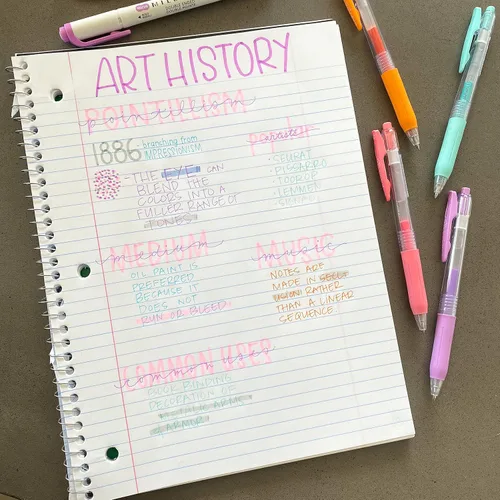 ART HISTORY
POINTILLISM
pointillism
1886 branching from
IMPRESSIONISM
THE EYE CAN
BLEND THE
COLORS INTO A
FULLER RANGE OF
TONES
artists
SEURAT
PISSARRO
TOOROP
LEMMEN
SIGNAC
MEDIUM
medium
OIL PAINT IS
PREFERRED
BECAUSE IT
DOES NOT
RUN OR BLEED
MUSIC
music
NOTES ARE
MADE IN
RATHER
THAN A LINEAR
SEQUENCE
COMMON USES
common uses
BOOK BINDING
DECORATION OF
ARMS
& ARMOR